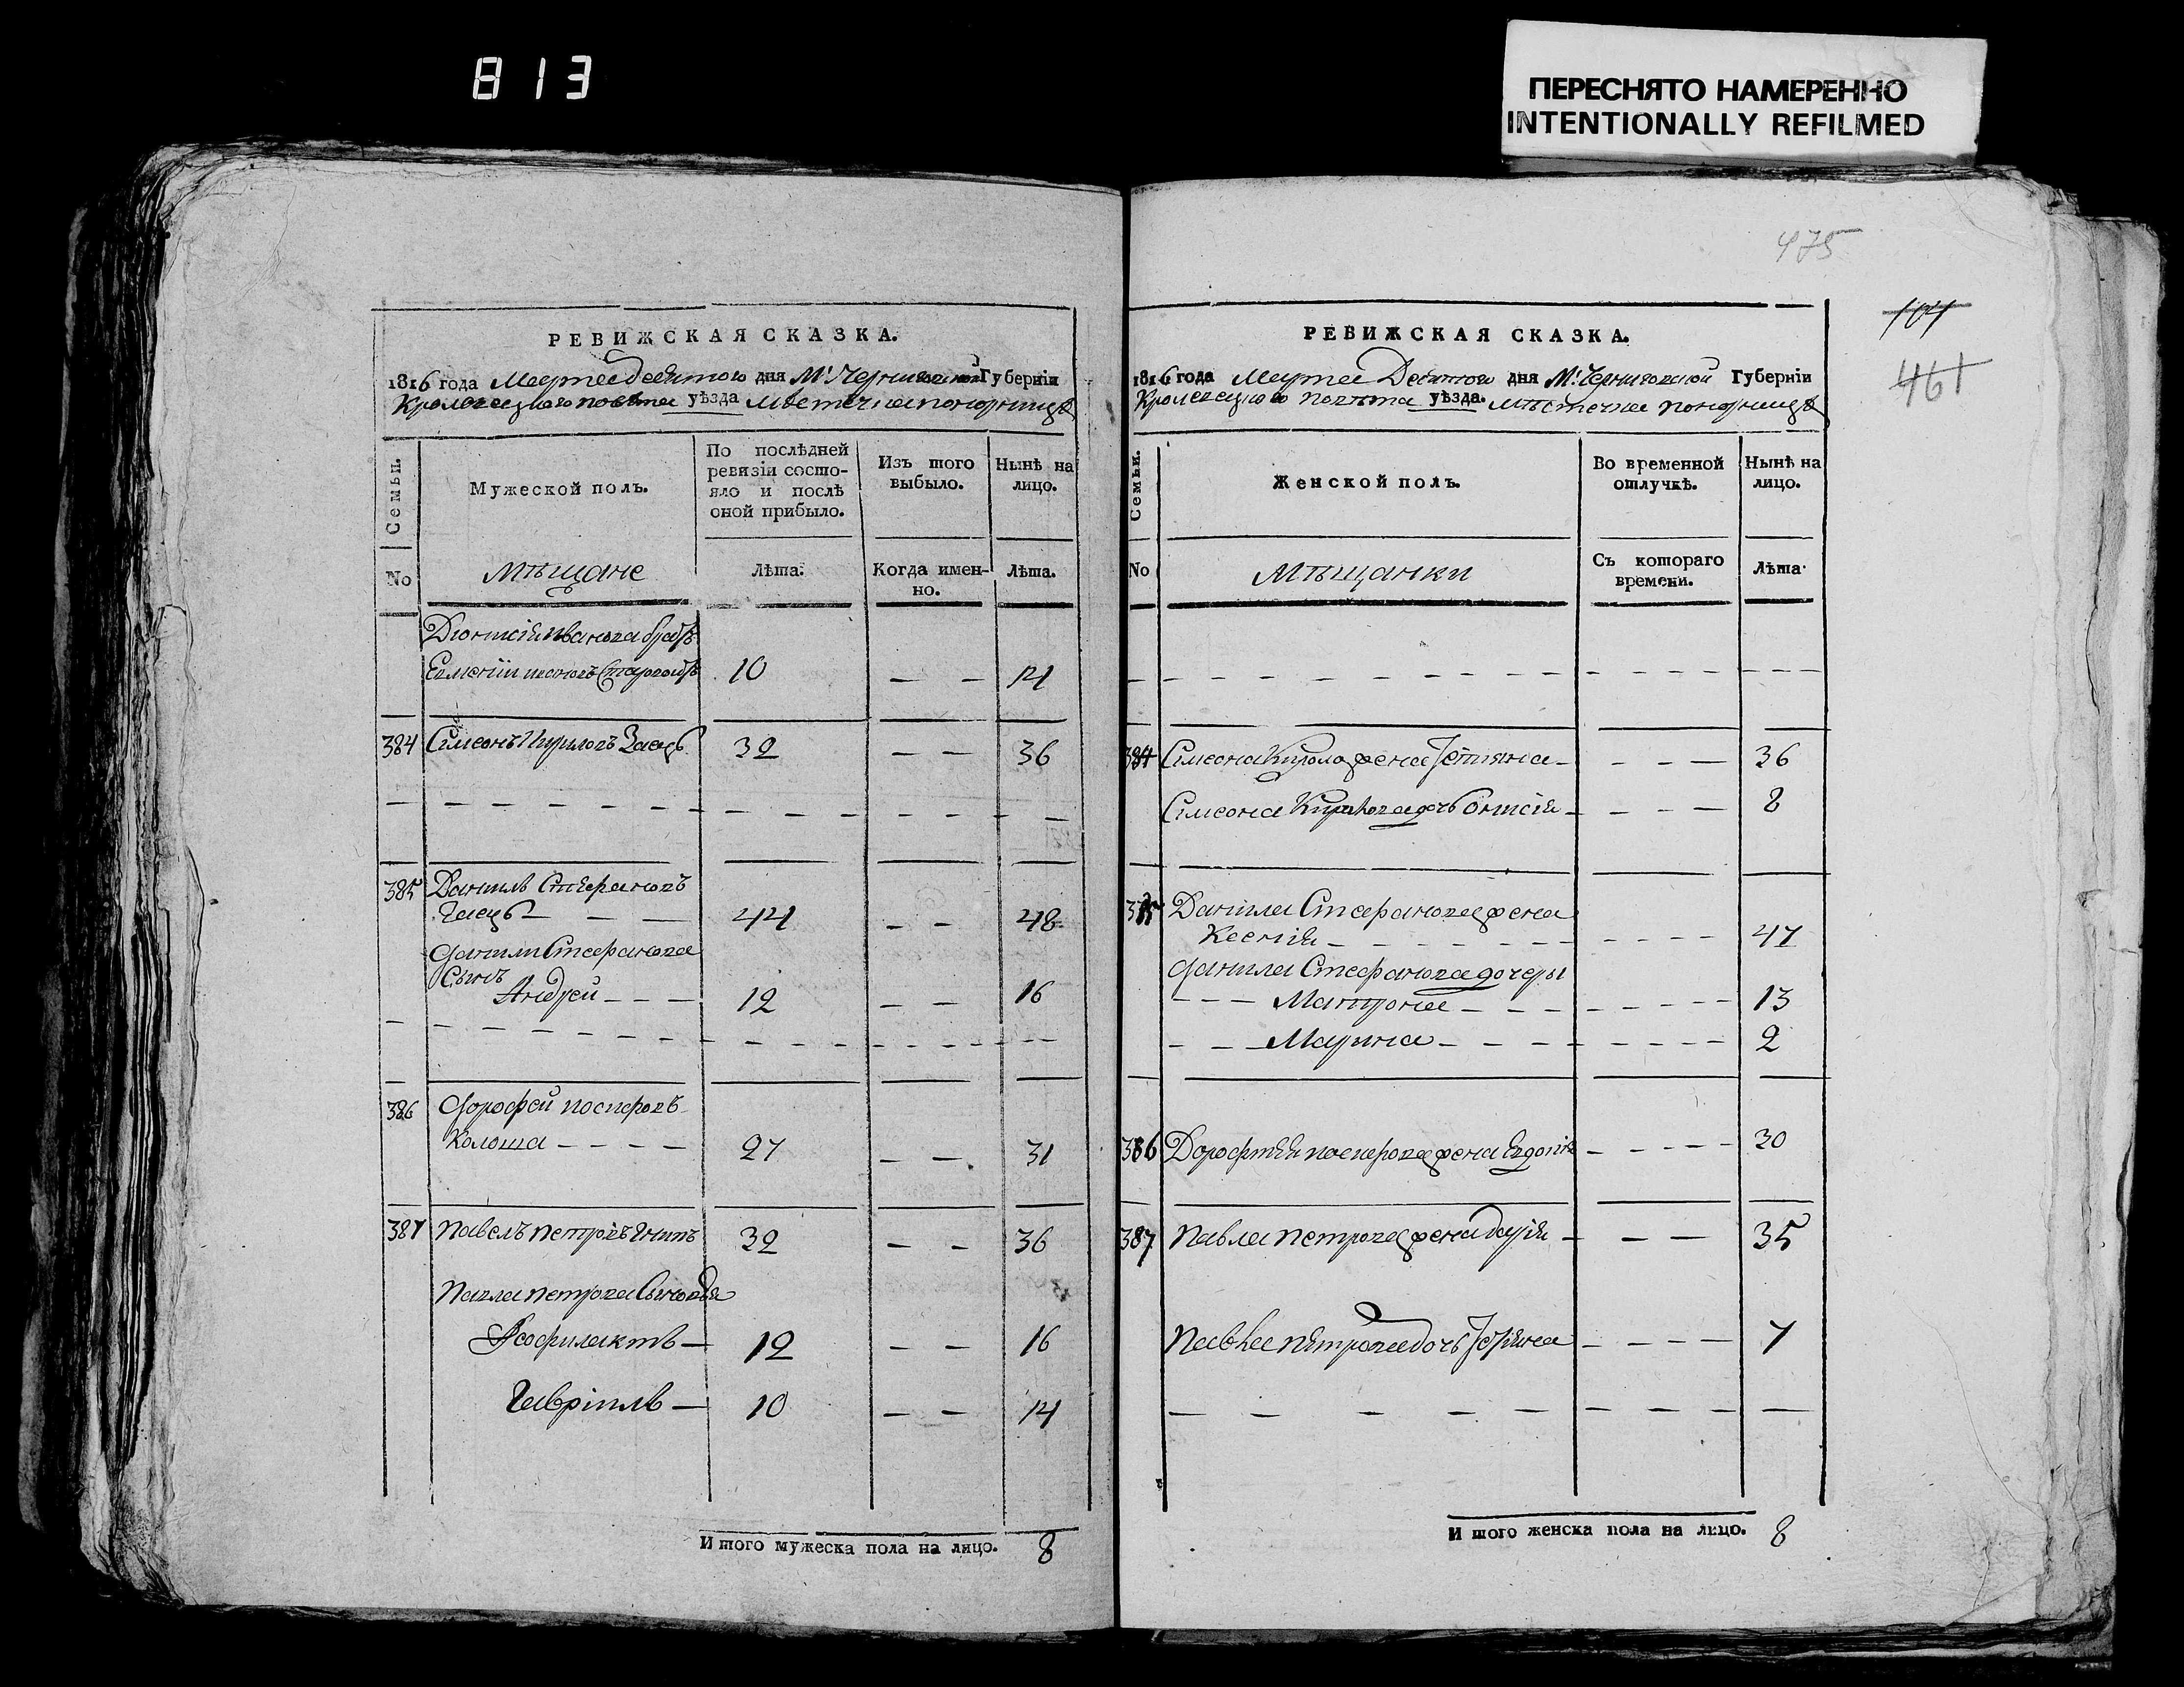 813
ПЕРЕСНЯТО НАМЕРЕННО
INTENTIONALLY REFILMED
РЕВИЖСКАЯ СКАЗКА.
1816 года Марта Десятого дня М: Черниговской Губерніи
Кролевецкаго повѣта уѣзда мѣстечка понорницѣ
Семьи.
Мужеской полъ.
По послѣдней
ревизіи состо-
яло и послѣ
оной прибыло.
Изъ того
выбыло.
Нынѣ на
лицо.
No
Мѣщане
Лѣта.
Когда имен-
но.
Лѣта.
Ивановъ 10 — — 14
384 Симеонъ Кириловъ Заецъ 32 — — 36
385 Данилъ Стефановъ
Заецъ — — — 44 — — 48
Данила Стефанова
Сынъ
Андрей — — — 12 — — 16
386 Дорофей
Колоша — — — — 27 — — 31
387 Павелъ Петровъ 32 — — 36
Павла Петрова Сыновья
Феофилактъ — 12 — — 16
Гавріилъ — 10 — — 14
И того мужеска пола на лицо. 8
475
104
461
РЕВИЖСКАЯ СКАЗКА.
1816 года Марта Десятого дня М: Черниговской Губерніи
Кролевецкого повѣта уѣзда. мѣстечка понорницѣ
Семьи.
Женской полъ.
Во временной
отлучкѣ.
Нынѣ на
лицо.
No
Мѣщанки
Съ котораго
времени.
Лѣта.
384 Симеона Кирилова жена — — — 36
Симеона Кирилова дочь — — — 8
385 Данила Стефанова жена
Ксенія — — — — 47
Данила Стефанова дочеры
— — — Матрона — — — 13
— — — Марина — — — — 2
386 Дорофѣя жена Евдокія — — — — 30
387 Павла Петрова жена Дарія — — — 35
Павла Петрова дочь — — — — 7
И того женска пола на лицо. 8